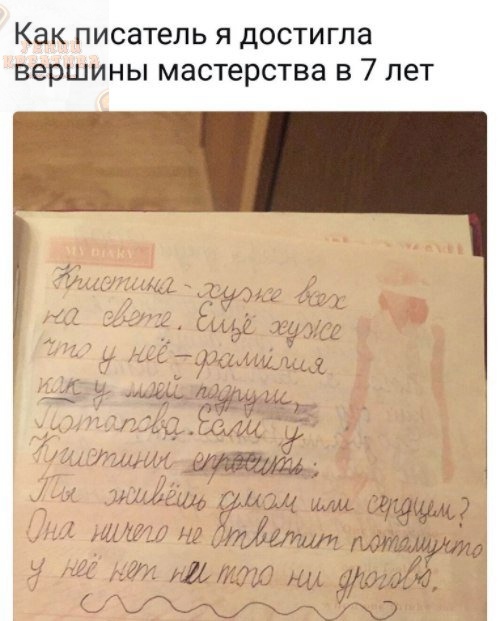 Как писатель я достигла
вершины мастерства в 7 лет
MY DIARY
Кристина - хуже всех
на свете. Ещё хуже
что у неё - фамилия
как у моей подруги,
Потапова. Если у
Кристины спросить:
Ты живёшь умом или сердцем?
Она ничего не ответит потомучто
у неё нет ни того ни другова.